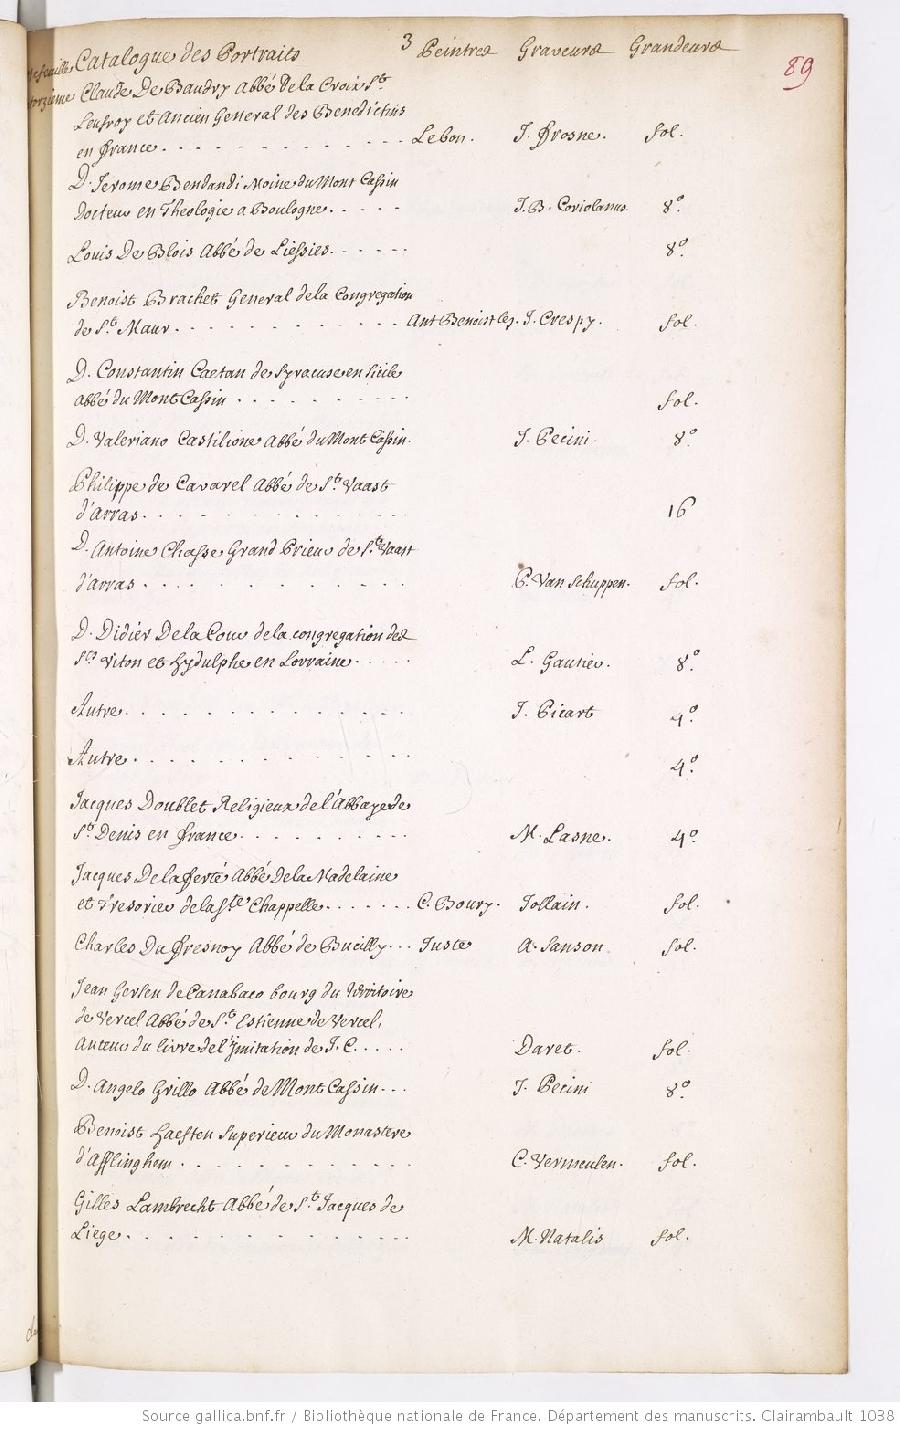 3
89
Catalogue des Portraits Peintres Graveurs Grandeurs
Claude De Baudry Abbé De la Croix St.
Leufroy et Ancien General des Benedictins
en france . . . . . Lebon. J. frosne. fol.
D. Jerome Bendandi Moine du Mont Cassin
Docteur en Theologie a Boulogne . . . . J. B. Coriolanus 8.º
Louis De Blois Abbé de Liessies . . . . . 8.º
Benoist Brachet General de la Congregation
de St. Maur . . . . . Ant Benoist J. Crespy. fol.
D. Constantin Caetan de Syracuse en Sicile
abbé du Mont Cassin . . . . . fol.
D. Valeriano Castilione Abbé du Mont Cassin. J. Pecini 8.º
Philippe de Cavarel Abbé de St. Vaast
d'Arras . . . . . 16
D. Antoine Chasse Grand Prieur de St. Vaast
d'arras . . . . . P. Van Schuppen. fol.
D. Didier De la Cour de la congregation des
Sts Viton et hydulphe en Lorraine . . . . L. Gautier. 8.º
Autre . . . . . J. Picart 4.º
Autre . . . . . 4.º
Jacques Doublet Religieux de l'Abbaye de
St. Denis en france . . . . . M. Lasne. 4.º
Jacques De la ferté Abbé De la Madelaine
et Tresorier de la Ste Chappelle . . . . . C. Boury. Jollain. fol.
Charles Du fresnoy Abbé de Bucilly . . . Juste A. Sanson fol.
Jean Gersen de Canabaco bourg du territoire
de Vercel Abbé de St. Estienne de Vercel,
Auteur du livre de l'Imitation de J. C. . . . . Daret. fol.
D. Angelo Grillo Abbé de Mont Cassin . . . J. Pecini 8.º
Benoist haeften Superieur du Monastere
d'Afflinghem . . . . . C. Vermeulen. fol.
Gilles Lambrecht Abbé de St. Jacques de
Liege . . . . . M. Natalis fol.
Source gallica.bnf.fr / Bibliothèque nationale de France. Département des manuscrits. Clairambault 1038